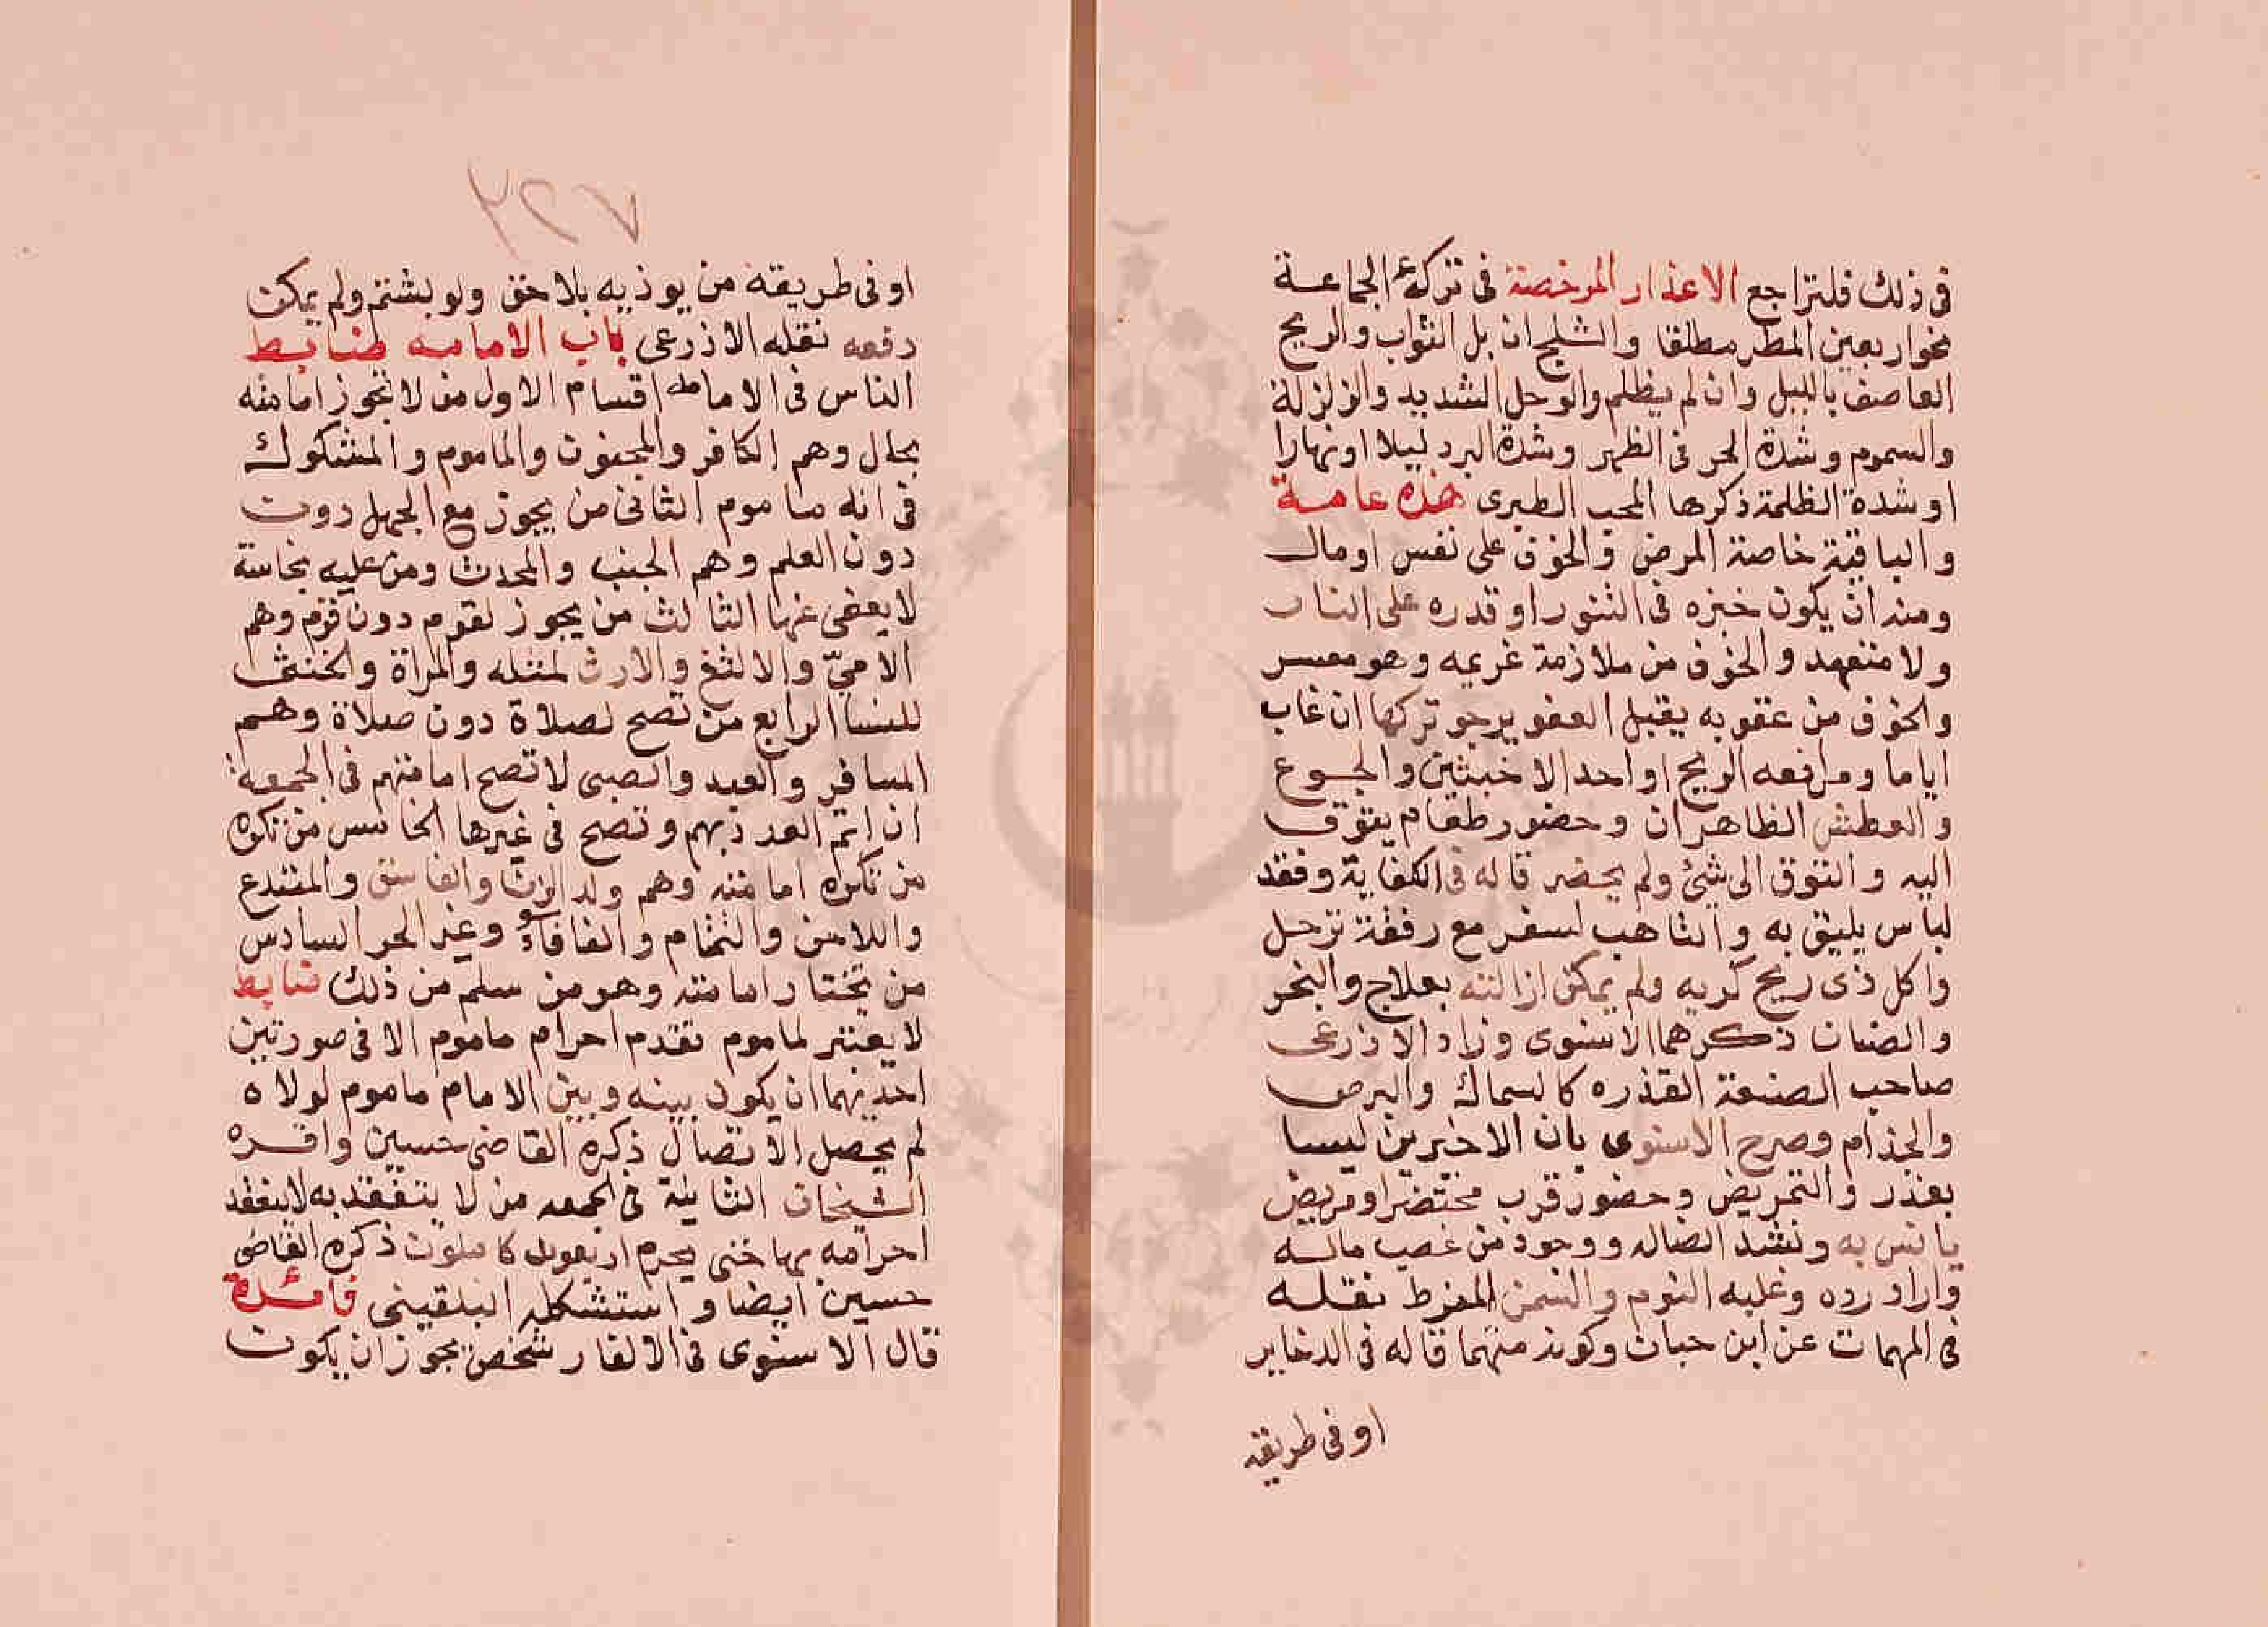 فى ذلك فلتراجع الاعذار المرخصة فى ترك الجماعة
نحواربعين المطر مطلقا والثلج ان بل الثواب والريح
العاصف بالليل وان لم يظلم والوحل الشديد والزلزلة
والسموم وشدة الحر فى الظهر وشدة البرد ليلا اونهارا
اوشدة الظلمة ذكرها المحب الطبرى هذه عامة
والباقية خاصة المرض والخوف على نفس اومال
ومنه ان يكون خبزه فى التنور اوقدره على النار
ولا متعهد والخوف من ملازمة غريمه وهو معسر
والخوف من عقوبه يقبل العفو يرجو تركها ان غاب
اياما ومدافعه الريح اواحد الاخبثين والجوع
والعطش الظاهران وحضور طعام يتوق
اليه والتوق الى شئ ولم يحضر قاله فى الكفاية وفقد
لباس يليق به والتاهب لسفر مع رفقة ترحل
واكل ذى ريح كريه ولم يمكن ازالته بعلاج والبخر
والصنان ذكرهما الاسنوى وزاد الاذرعى
صاحب الصنعة القذره كالسماك والبرص
والجذام وصرح الاسنوى بان الاخيرين ليسا
بعذر والتمريض وحضور قرب محتضر اومريض
يانس به ونشد الضاله ووجود من غصب ماله
واراد رده وغلبه النوم والسمن المفرط نقله
فى المهمات عن ابن حبان وكونه منهما قاله فى الدخاير
اوفى طريقه
٢٢٧
اوفى طريقه من يوذيه بلاحق ولوبشتم ولم يمكن
دفعه نقله الاذرعى باب الامامه ضابط
الناس فى الامامه اقسام الاول من لا تجوز امامته
بحال وهم الكافر والمجنون والماموم والمشكوك
فى انه ماموم الثانى من يجوز مع الجهل دون
دون العلم وهم الجنب والمحدث ومن عليه نجاسة
لا يعفى عنها الثالث من يجوز لقوم دون قوم وهم
الامىّ والالثغ والارث لمثله والمراة والخنثى
للنسا الرابع من تصح لصلاة دون صلاة وهم
المسافر والعبد والصبى لا تصح امامتهم فى الجمعة
ان اتم العدد بهم وتصح فى غيرها الخامس من تكره
من تكره امامته وهم ولد الزنا والفاسق والمبتدع
واللاحن والتمتام والفافاء وغير الحر السادس
من تختار امامته وهو من سلم من ذلك ضابط
لا يعتبر لماموم تقدم احرام ماموم الا فى صورتين
احديهما ان يكون بينه وبين الامام ماموم لولاه
لم يحصل الاتصال ذكره القاضى حسين واقره
الشيخان الثانية فى الجمعه من لا تنعقد به لا ينعقد
احرامه بها حتى يحرم اربعون كاملون ذكره القاضى
حسين ايضا واستشكله البلقينى فائدة
قال الاسنوى فى الالغاز شخص يجوز ان يكون